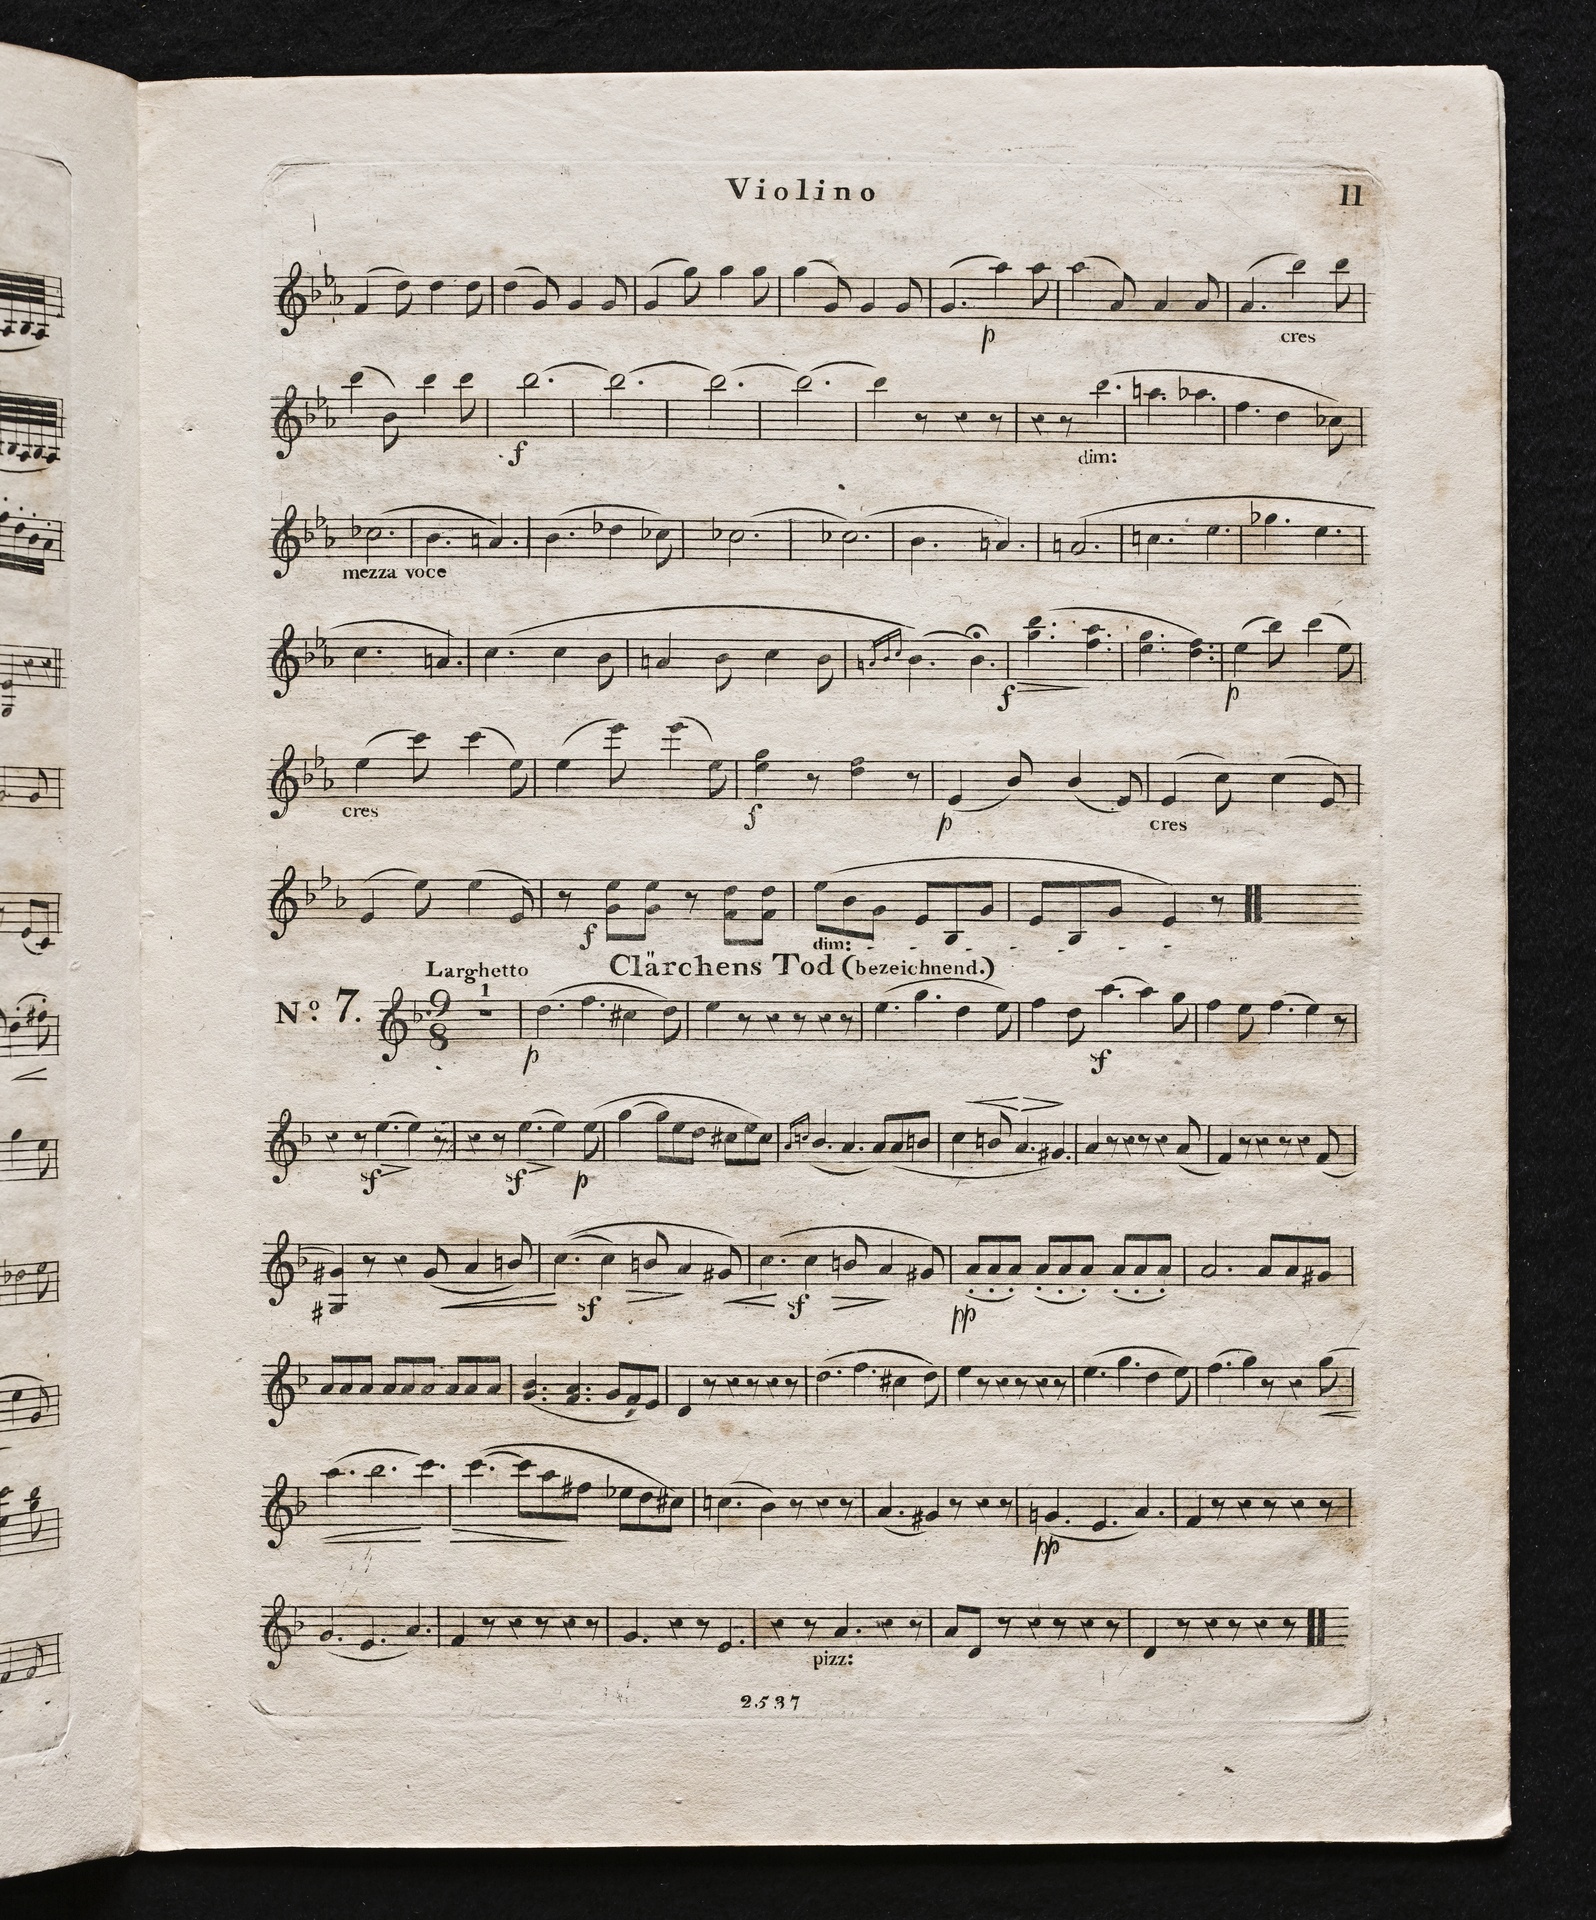 Violino 11
p cres
f dim:
mezza voce
f p
cres f p cres
f dim:
Larghetto Clärchens Tod (bezeichnend.)
Nº 7. 9 8 1
p sf
sf sf p
sf sf pp
pp
pizz:
2537